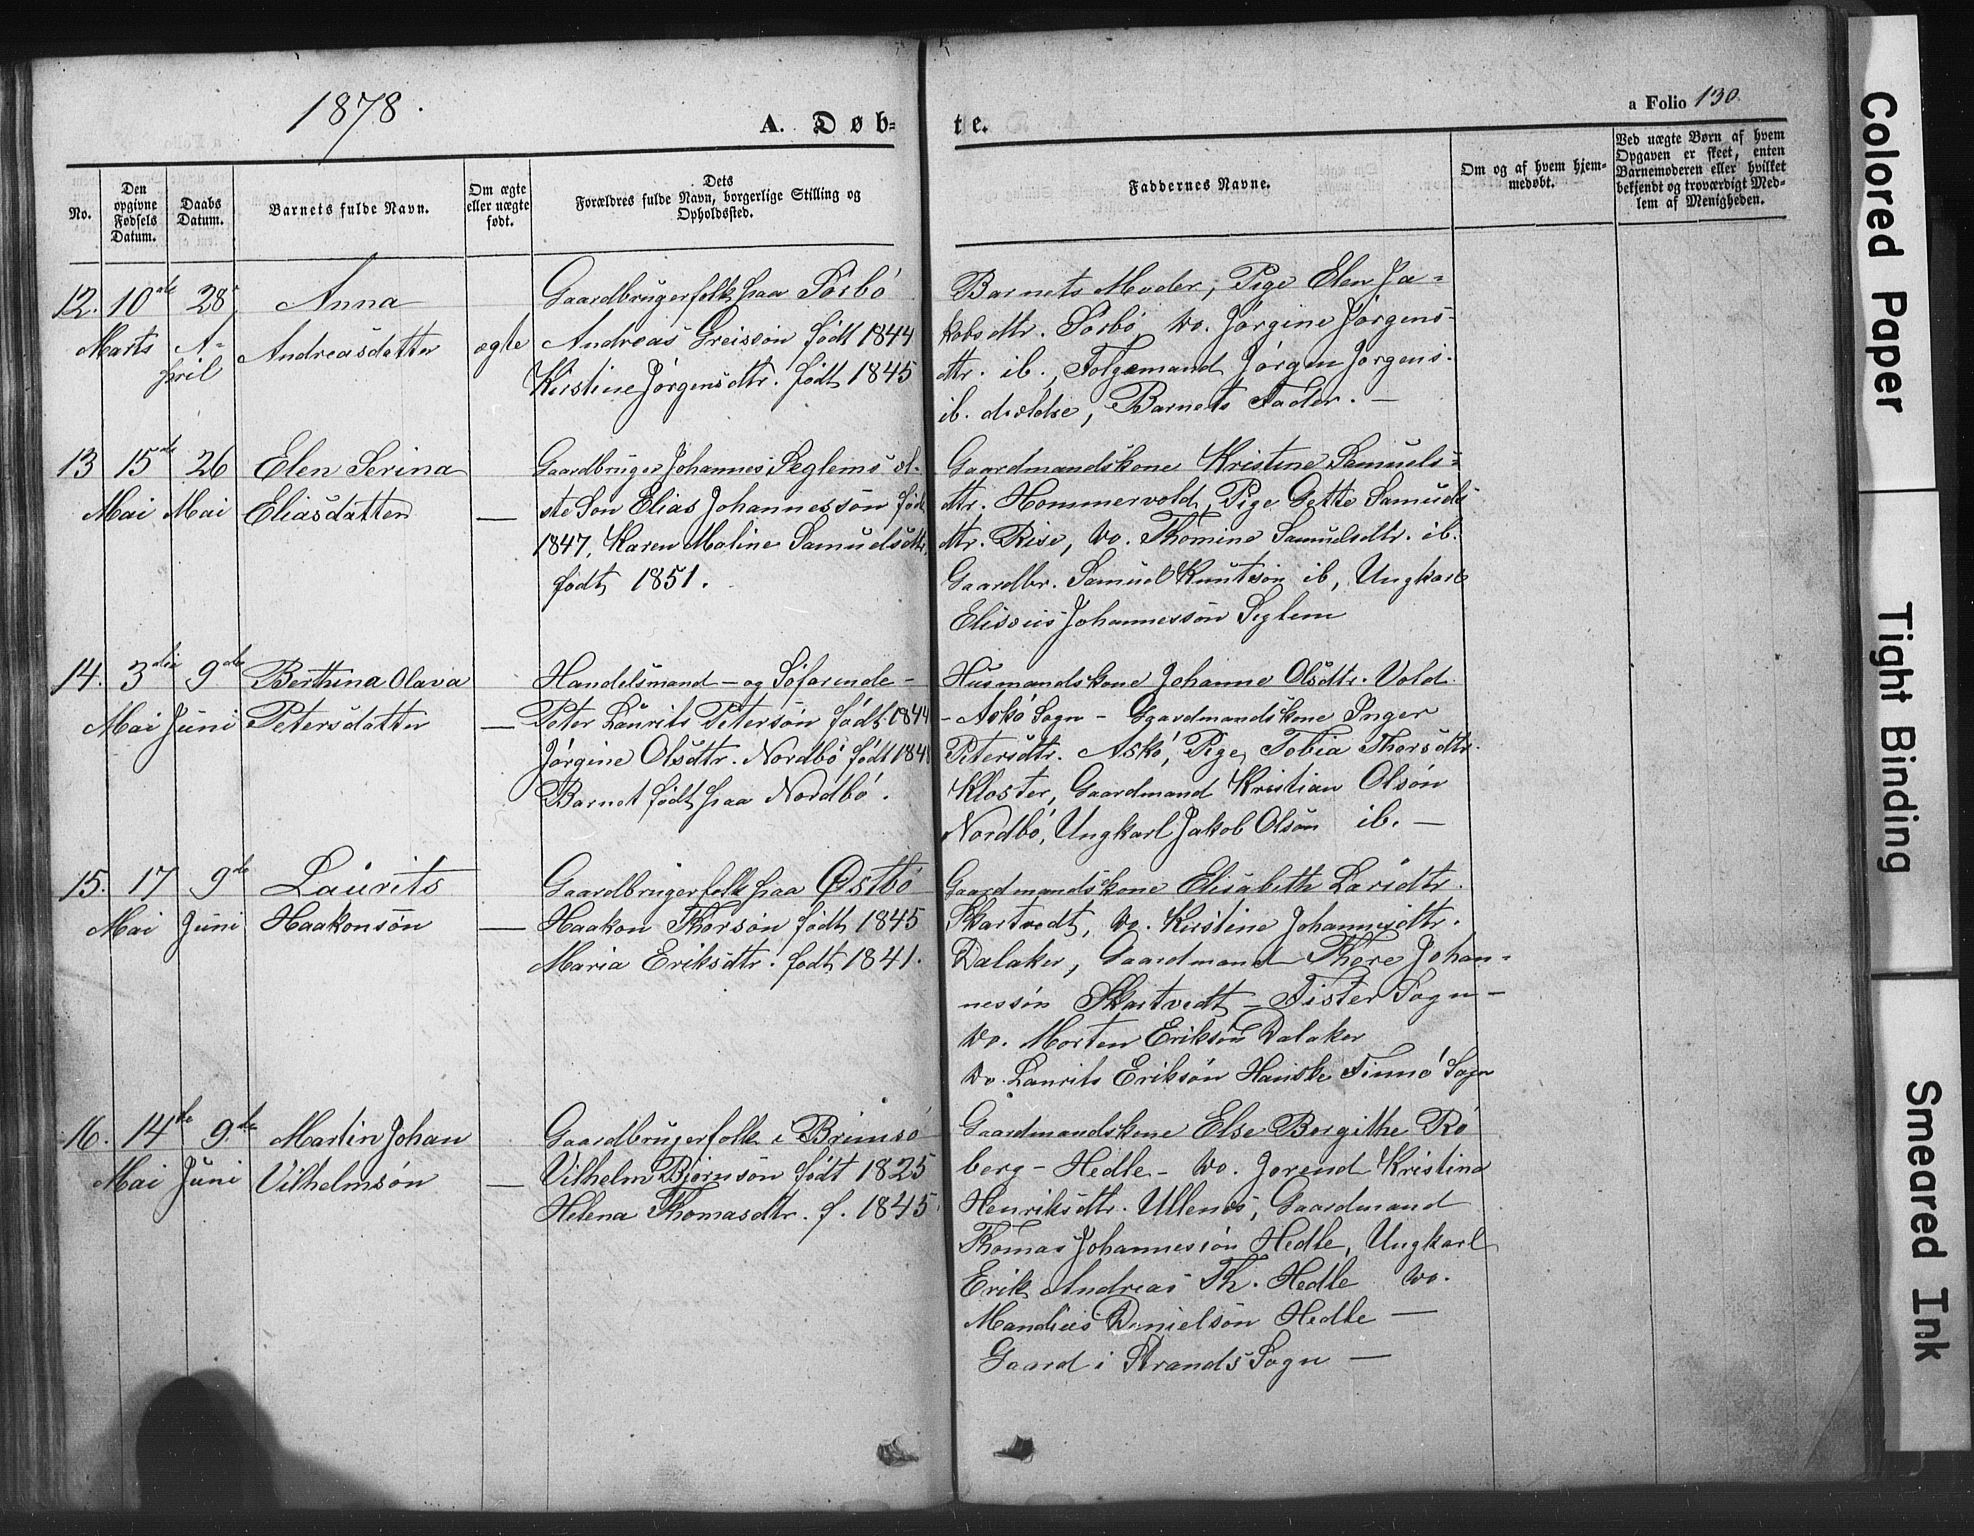 1878.
A. Døb-
te.
a Folio 130.
No.
Den opgivne Fødsels Datum.
Daabs Datum.
Barnets fulde Navn.
Om ægte eller uægte født.
Dets Forældres fulde Navn, borgerlige Stilling og Opholdssted.
Faddernes Navne.
Om og af hvem hjem-
medøbt.
Ved uægte Børn af hvem
Opgaven er skeet, enten
Barnemoderen eller hvilket
bekjendt og troværdigt Med-
lem af Menigheden.
12. 10de 28 Anna
Marts A- Andreasdatter ægte
pril
Gaardbrugerfolk paa Sørbö
Andreas Greissøn født 1844
Kirstine Jørgensdtr. født 1845
Barnets Moder, Pige Elen Ja-
kobsdtr. Sørbö, do. Jørgine Jørgens-
dtr. ib., Følgemand Jørgen Jørgens.
ib. , Barnets Fader. —
13 15de 26 Elen Serina
Mai Mai Eliasdatter —
Gaardbruger Johannes Seglems æl-
ste Søn Elias Johannessøn født
1847, Karen Maline Samuelsdtr.
født 1851.
Gaardmandskone Kristine Samuels-
dtr. Hommervold, Pige Gette Samuels
dtr. Rise, do. Thomine Samuelsdtr. ib.
Gaardbr. Samuel Knutsøn ib, Ungkarl
Elisæus Johannessøn Seglem
14. 3die 9de Berthina Olava
Mai Juni Petersdatter —
Handelsmand - og Søfarende -
Peter Laurits Petersøn født 1844
Jørgine Olsdtr. Nordbö født 1848
Barnet født paa Nordbö.
Husmandskone Johanne Olsdtr. Vold
- Askö Sogn - Gaardmandskone Inger
Petersdtr. Askö, Pige Tobia Thorsdtr.
Kloster, Gaardmand Kristian Olsøn
Nordbö, Ungkarl Jakob Olsøn ib. —
15. 17 9de Laurits
Mai Juni Haakonsøn —
Gaardbrugerfolk paa Østbö
Haakon Thorsøn født 1845
Maria Eriksdtr. født 1841.
Gaardmandskone Elisabeth Larsdtr.
Skartvedt, do. Kirstine Johannesdtr.
Dalaker, Gaardmand Thore Johan-
nessøn Skartvedt - Fister Sogn -
do. Morten Eriksøn Dalaker
do. Laurits Eriksøn Hauske Finnö Sogn
16. 14de 9de Martin Johan
Mai Juni Vilhelmsøn —
Gaardbrugerfolk i Brimsö
Vilhelm Bjørnsøn født 1825
Helena Thomasdtr. f. 1845
Gaardmandskone Else Borgithe Rø
berg - Hedle - do. Jorend Kristina
Henriksdtr. Ullenes, Gaardmand
Thomas Johannessøn Hedle, Ungkarl
Erik Andreas Th. Hedle do.
Mandius Danielsøn Hedle —
Gaard i Strands Sogn —
Colored Paper
Tight Binding
Smeared Ink